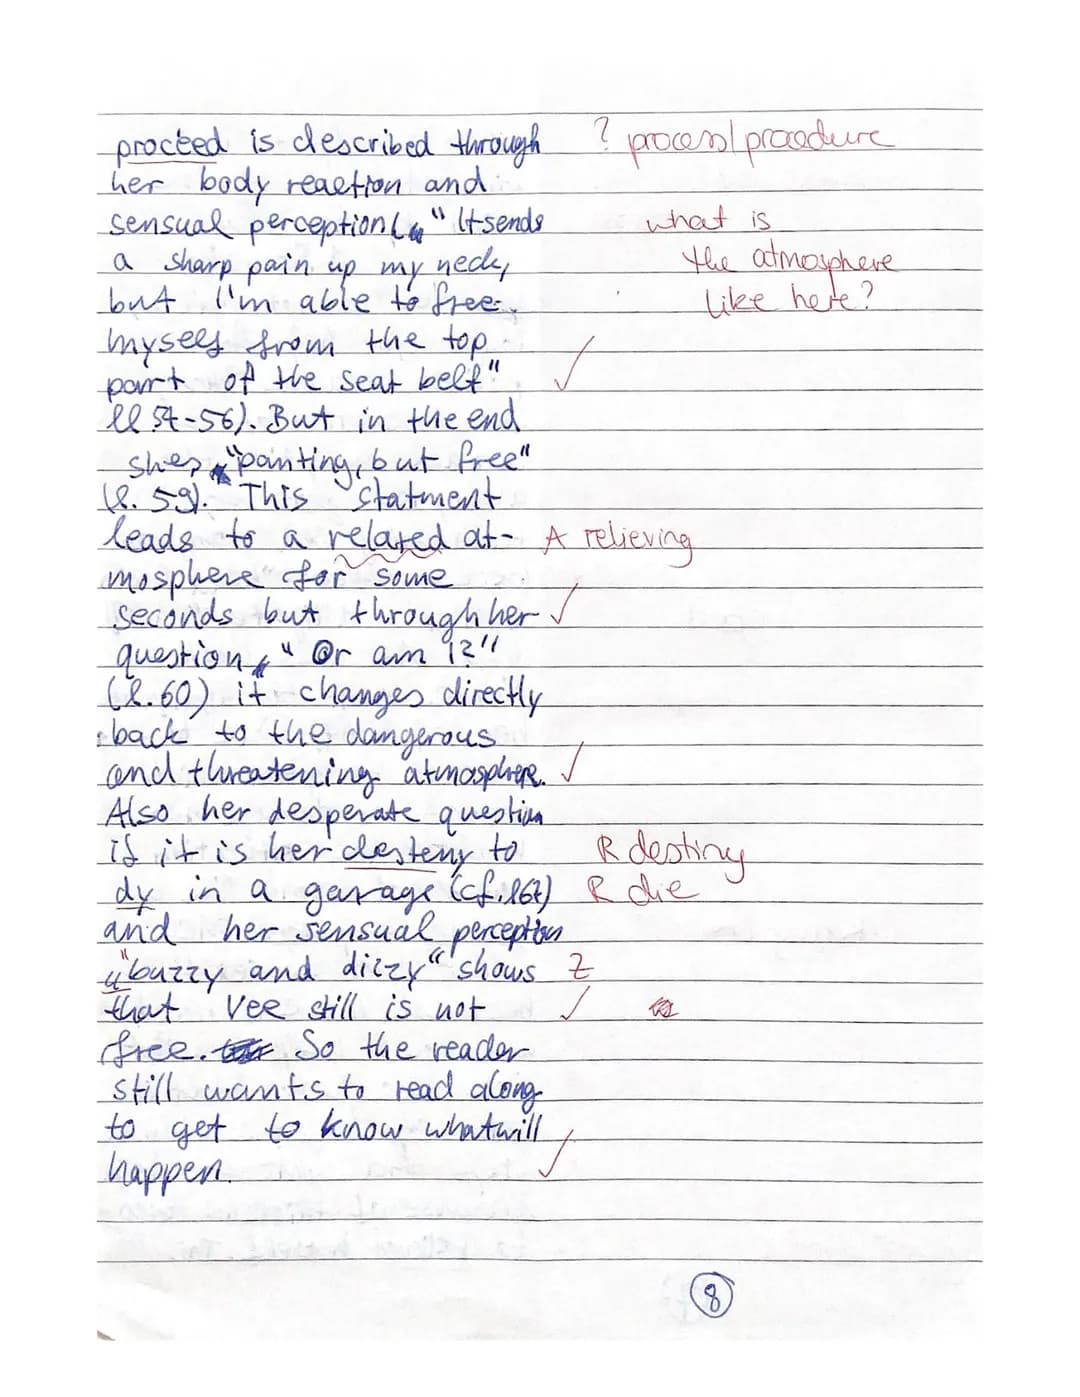 proceed is described through ? process/procedure
her body reaction and
sensual perception ( " It sends what is
a sharp pain up my neck, the atmosphere
but I'm able to free like here?
myself from the top
part of the seat belt" ✓
ll 54-56). But in the end
shes "panting, but free"
(l. 59). This statment
leads to a relaxed at- A relieving
mosphere for some
seconds but through her ✓
question " Or am I?"
(l. 60) it changes directly
back to the dangerous
and threatening atmosphere. ✓
Also her desperate question
if it is her desteny to R destiny
dy in a garage (cf. l 67) R die
and her sensual perception
"buzzy and dizzy" shows Z
that Vee still is not ✓
free. So the reader
still wants to read along
to get to know what will
happen. ✓
8